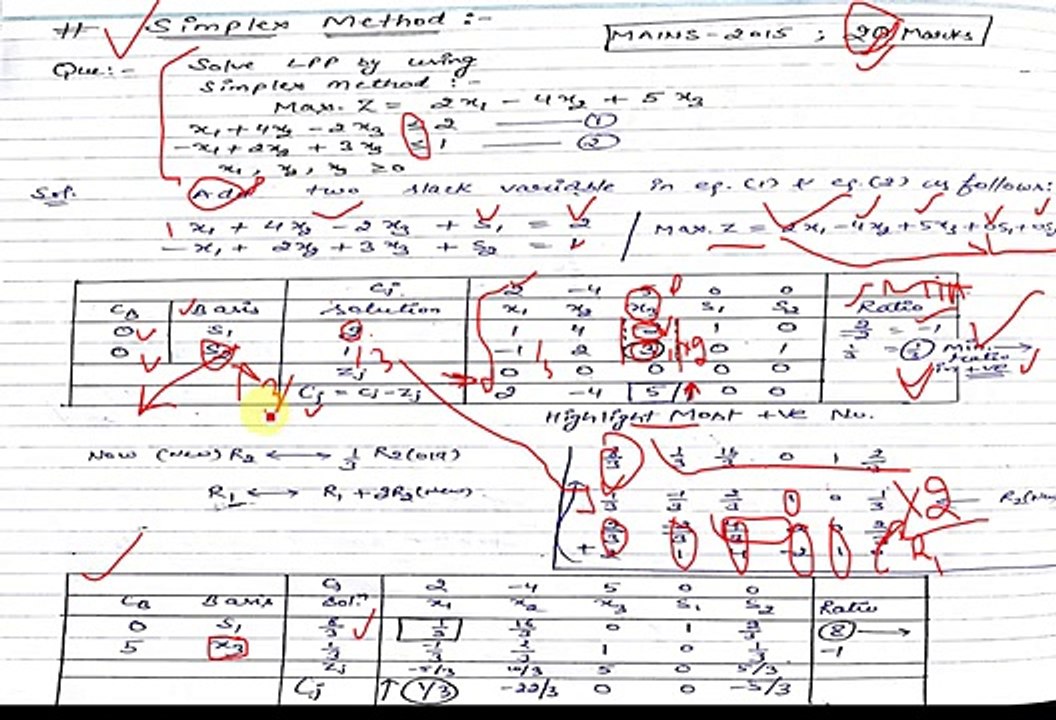 # Simplex Method :-
MAINS-2015 ; 20 Marks
Que:- Solve LPP by using
Simplex Method :-
Max. Z = 2x₁ - 4x₂ + 5x₃
x₁ + 4x₂ - 2x₃ ≤ 2 ——— ①
-x₁ + 2x₂ + 3x₃ ≤ 1 ——— ②
x₁, x₂, x₃ ≥ 0
Sol. Add two slack variable in eq. (1) & eq. (2) as follows:
1 x₁ + 4x₂ - 2x₃ + S₁ = 2 / Max. Z = 2x₁ - 4x₂ + 5x₃ + 0S₁ +
-x₁ + 2x₂ + 3x₃ + S₂ = 1
Cj 2 -4 5 0 0 Min
CB Basis Solution x₁ x₂ x₃ S₁ S₂ Ratio
0 S₁ 2 1 4 -2 1 0 = -1
0 S₂ 1 -1 2 3 0 1 1/3 = 1/3 Min. Ratio in +ve
Zj 0 0 0 0 0
Cj = Cj - Zj 2 -4 5 ↑ 0 0
Highlight Most +ve No.
Now (New) R₂ ⟷ 1/3 R₂(old)
R₁ ⟷ R₁ + 2R₂(New)
8/3 1/3 16/3 0 1 2/3
1/3 -1/3 2/3 1 0 1/3 ×2 R₂(New
R₁
Cj 2 -4 5 0 0
CB Basis Solⁿ x₁ x₂ x₃ S₁ S₂ Ratio
0 S₁ 8/3 1/3 16/3 0 1 2/3 8 →
5 x₃ 1/3 -1/3 2/3 1 0 1/3 -1
Zj -5/3 10/3 5 0 5/3
Cj ↑ 1/3 -22/3 0 0 -5/3